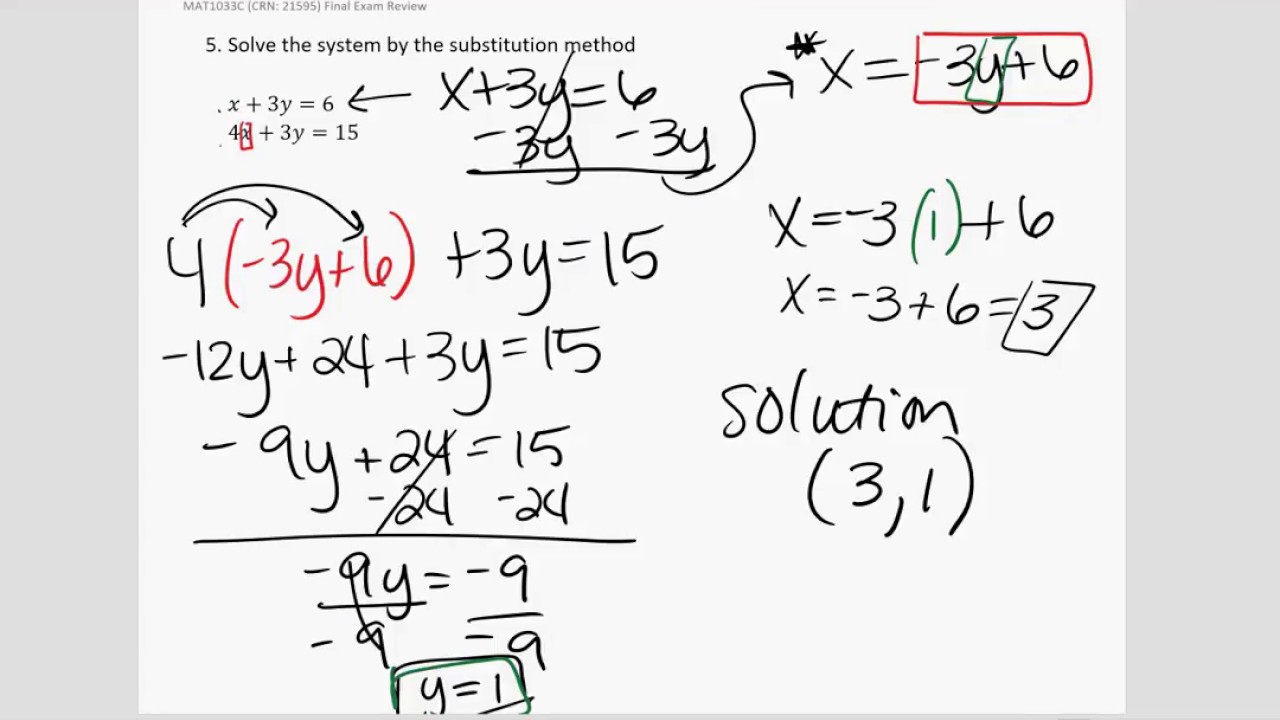 MAT1033C (CRN: 21595) Final Exam Review
5. Solve the system by the substitution method
x + 3y = 6
4x + 3y = 15
x+3y=6
-3y -3y
*x=-3y+6
4(-3y+6) +3y=15
-12y+24+3y=15
-9y+24=15
-24 -24
-9y=-9
-9 -9
y=1
x=-3(1)+6
x=-3+6=3
solution
(3,1)